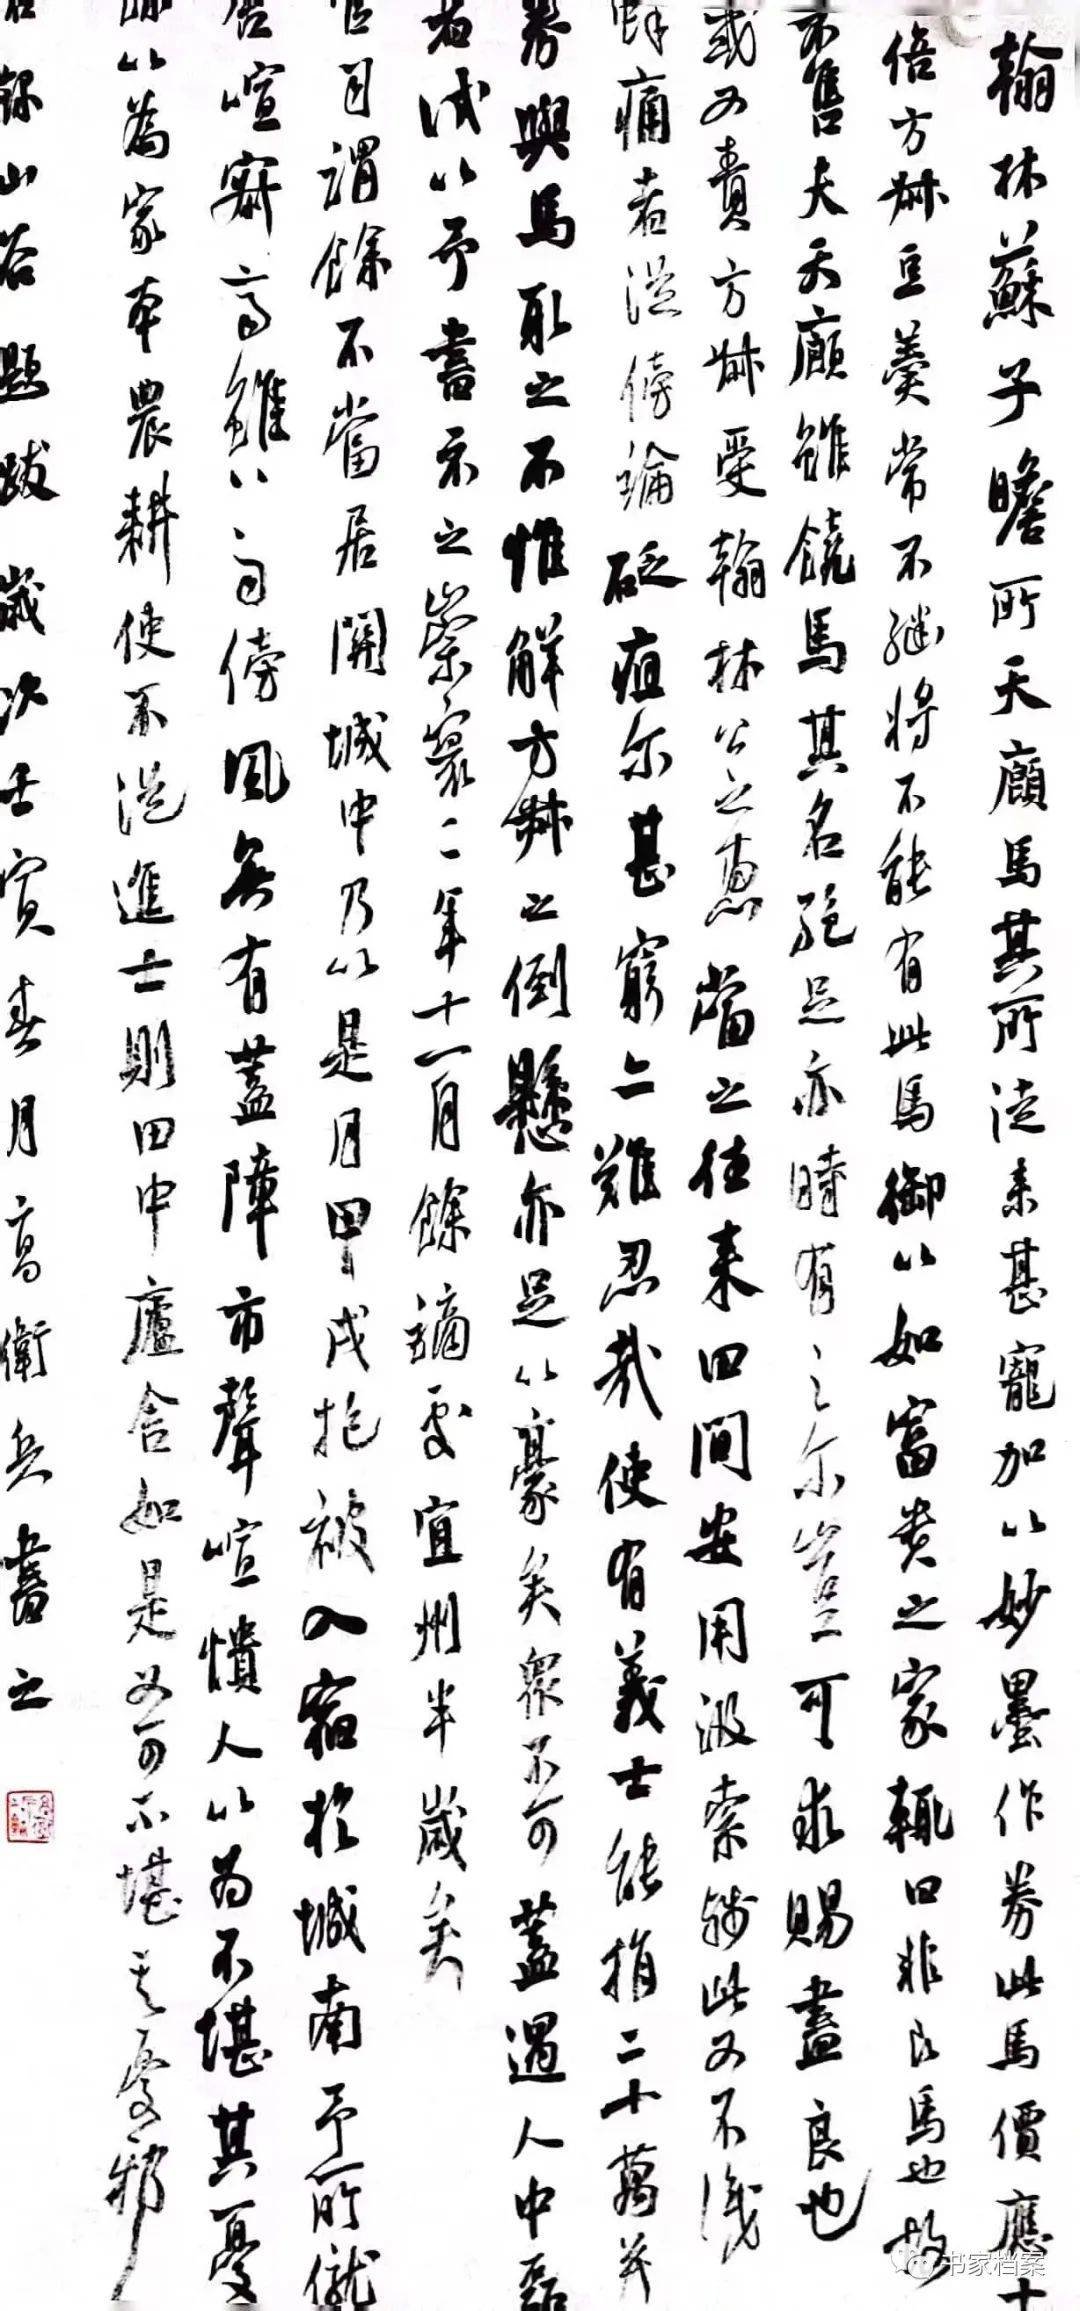 翰林蘇子瞻所天廄馬其所從來甚寵加以妙墨作券此馬價應十
倍方叔豆羹常不繼將不能有此馬御以如富貴之家輒曰非良馬也故
不售夫天廄雖饒馬其名絕足亦時有之尔豈可求賜盡良也
或又責方叔受翰林公之惠當之往來田間安用汲索錢此又不識
蛘痛者從傍論砭疽尔甚窮亡難忍哉使有義士能捐二十萬并
券與馬取之不惟解方叔之倒懸亦足以豪矣衆不可蓋遇人中磊
者試以予書示之崇寧二年十一月餘謫處宜州半歲矣
官司謂餘不當居關城中乃以是月甲戌抱被入宿於城南予所僦
舍喧寂齋雖上雨傍風無有蓋障市聲喧憒人以為不堪其憂
餘以為家本農耕使不從進士則田中廬舍如是又可不堪其憂邪
右錄山谷題跋歲次壬寅春月高衛兵書之
书家档案